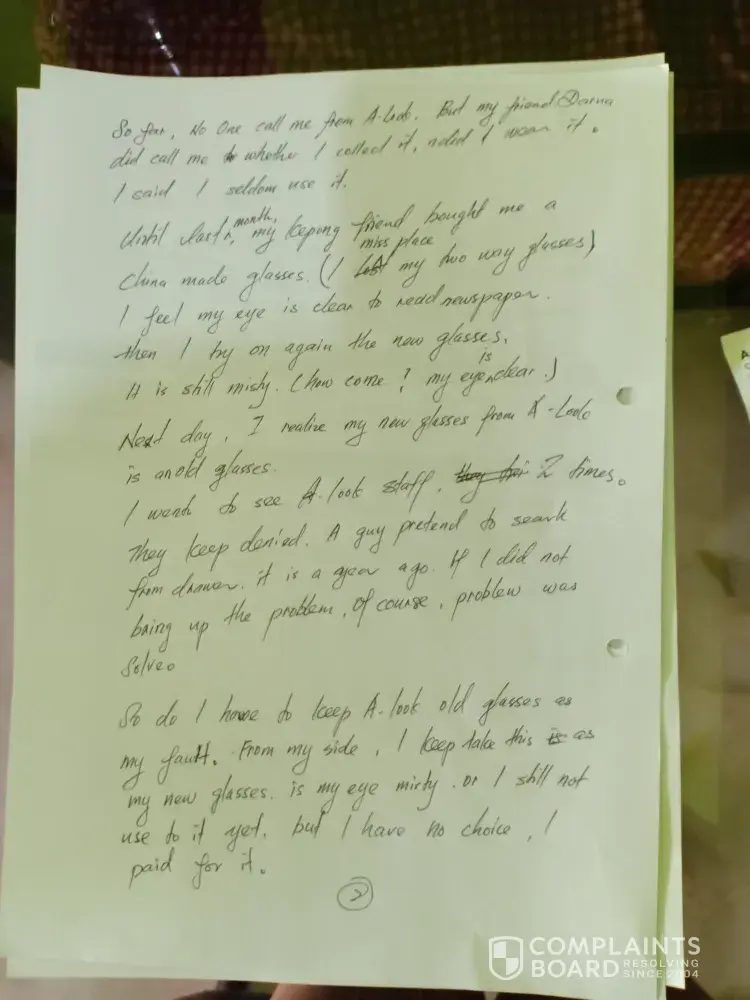 So far, No One call me from A-Look. But my friend Darna
did call me to whether I collect it, ndid I wear it.
I said I seldom use it.
Until last month, my kepong friend bought me a
China made glasses. (I lost miss place my two way glasses)
I feel my eye is clear to read newspaper.
then I try on again the new glasses.
It is still misty. (how come! my eye is clear.)
Next day, I realize my new glasses from A-Look
is an old glasses.
I went to see A-look staff, 2 times.
They keep denied. A guy pretend to search
from drawer. it is a year ago. If I did not
bring up the problem, of course, problem was
solve.
So do I have to keep A-look old glasses as
my fault. From my side, I keep take this is as
my new glasses. is my eye misty. or I still not
use to it yet. but I have no choice, I
paid for it.
2
COMPLAINTS
BOARD RESOLVING
SINCE 2004
A